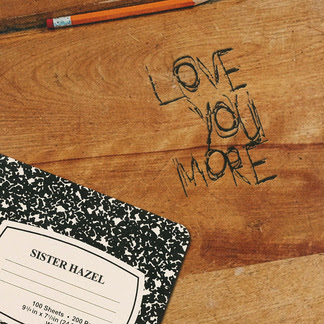 LOVE
YOU
MORE
SISTER HAZEL
100 Sheets • 200
9¾ in x 7½ in (24